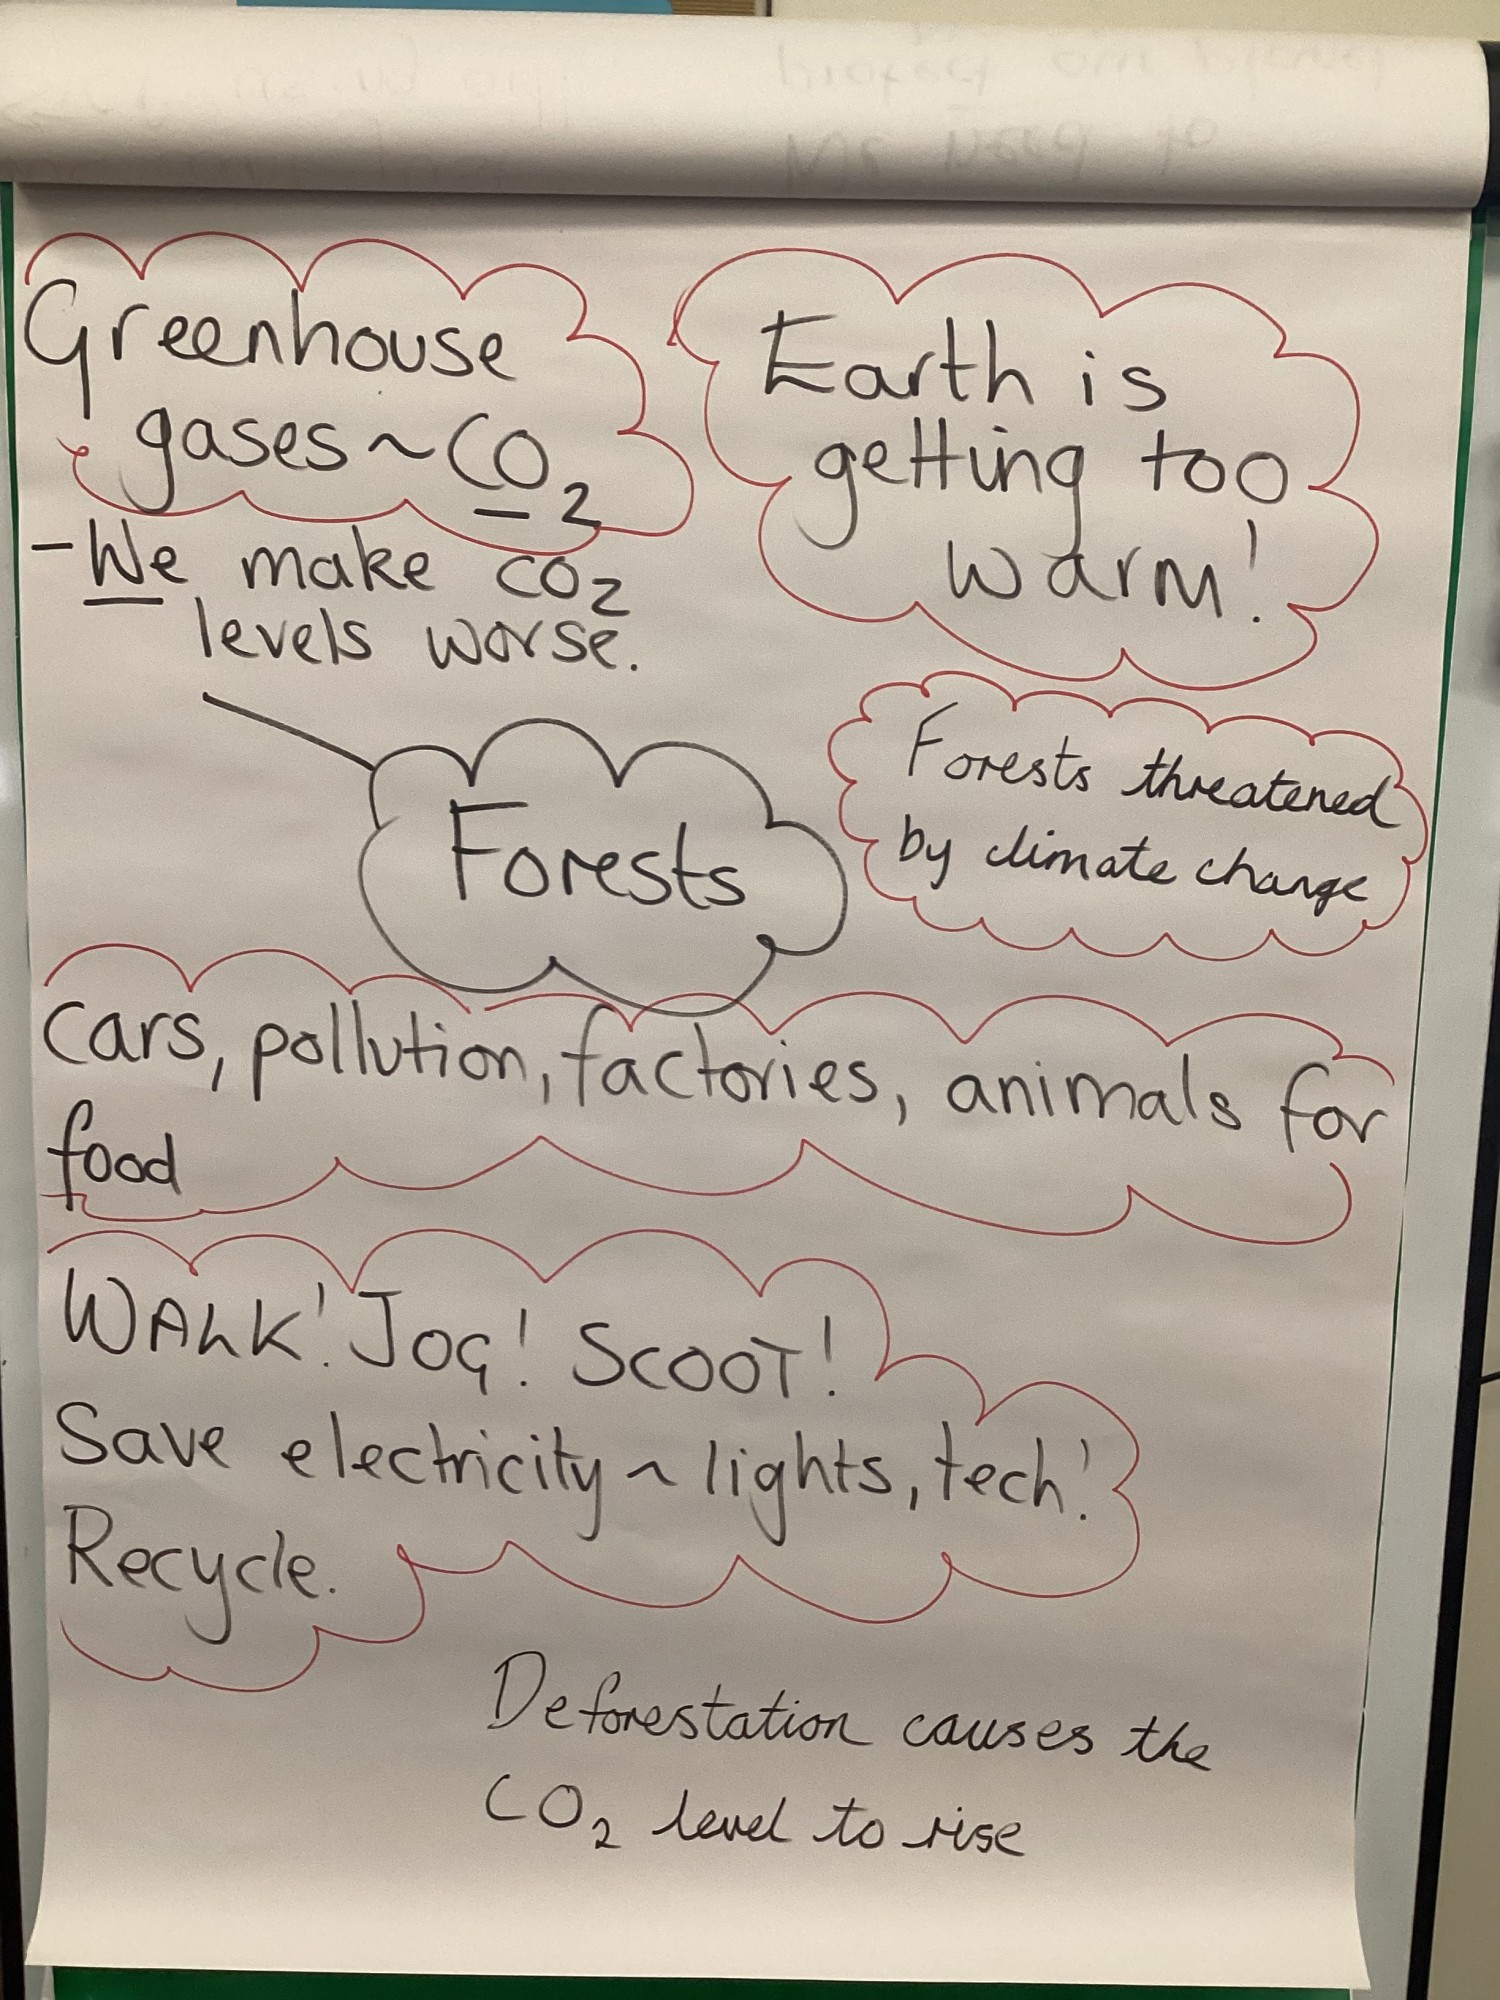 Greenhouse
gases ~ CO₂
- We make CO₂
levels worse.
Earth is
getting too
warm!
Forests threatened
by climate change
Forests
Cars, pollution, factories, animals for
food
WALK! JOG! SCOOT!
Save electricity ~ lights, tech!
Recycle.
Deforestation causes the
CO₂ level to rise